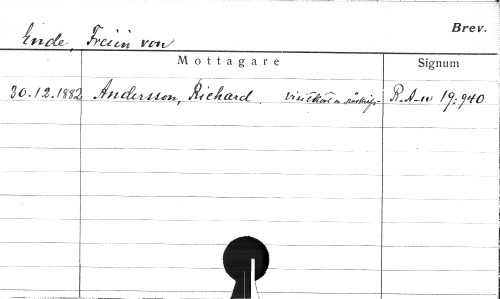 Brev.
Ende, Freiin von
Mottagare Signum
30.12.1882 Andersson, Richard. Visitkort m. R.A-n 19:940